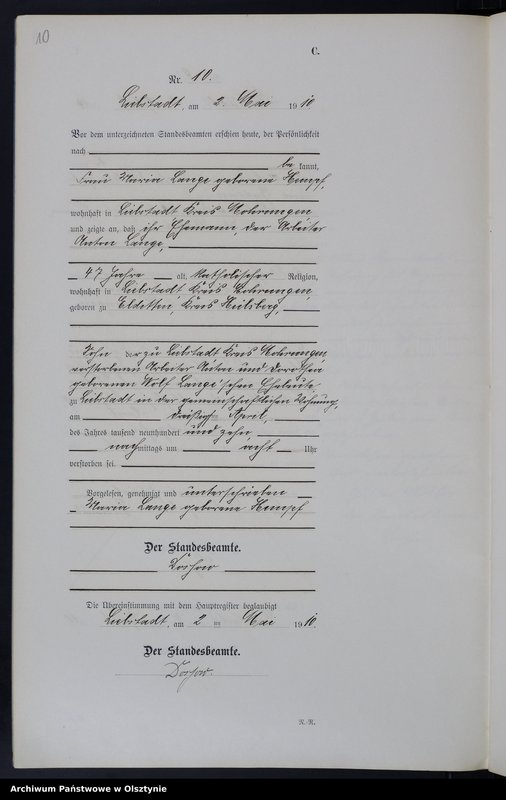 10
C.
Nr. 10.
Liebstadt, am 2. Mai 1910
Vor dem unterzeichneten Standesbeamten erschien heute, der Persönlichkeit
nach
be kannt,
Frau Maria Lange geborene Hempf,
wohnhaft in Liebstadt Kreis Mohrungen
und zeigte an, daß ihr Ehemann, der Arbeiter
Anton Lange,
47 Jahre alt, katholischer Religion,
wohnhaft in Liebstadt Kreis Mohrungen,
geboren zu Eldetten, Kreis Heilsberg,
Sohn der zu Liebstadt Kreis Mohrungen,
verstorbenen Arbeiter Anton und Dorothea
geborenen Wolf Lange'schen Eheleute
zu Liebstadt in der gemeinschaftlichen Wohnung,
am dreißig April,
des Jahres tausend neunhundert und zehn,
nachmittags um acht Uhr
verstorben sei.
Vorgelesen, genehmigt und unterschrieben
Maria Lange geborene Hempf
Der Standesbeamte.
Die Übereinstimmung mit dem Hauptregister beglaubigt
Liebstadt, am 2 ten Mai 1910.
Der Standesbeamte.
N.-R.
Archiwum Państwowe w Olsztynie